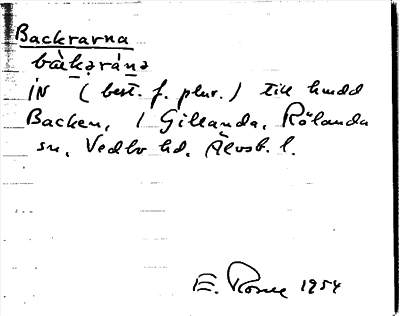 Backrarna
bàkəránə
iN (best. f. plur.) till hmdd
Backen, i Gillanda, Rölanda
sn, Vedbo hd, Älvsb. l.
E. 1954